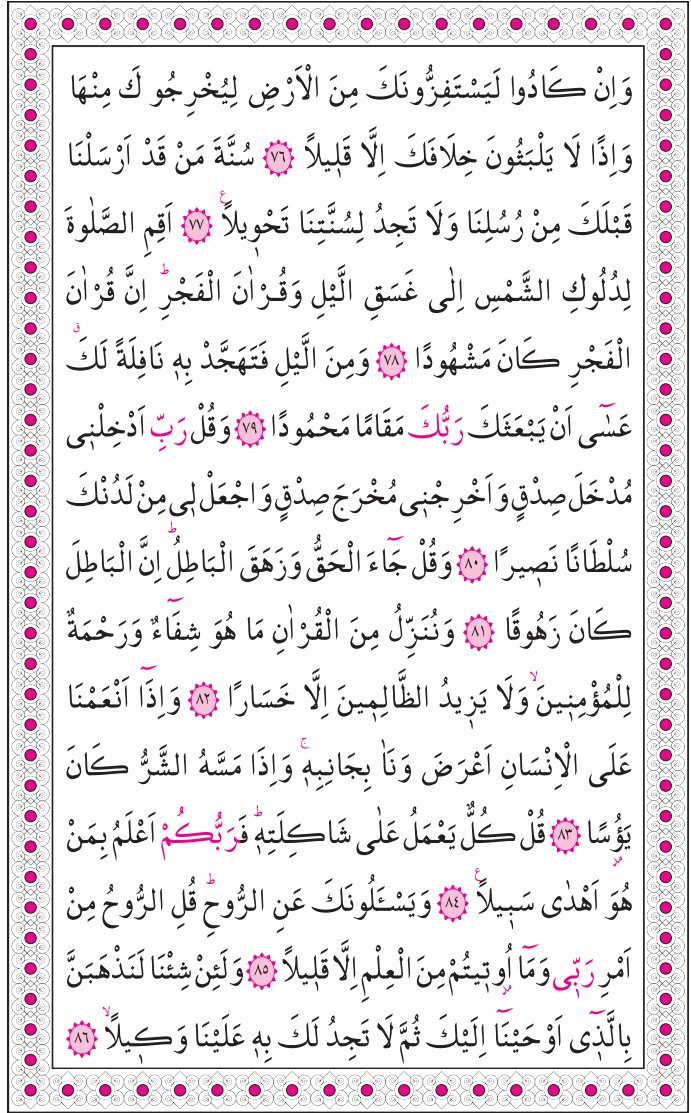 وَاِنْ كَادُوا لَيَسْتَفِزُّونَكَ مِنَ الْاَرْضِ لِيُخْرِجُو كَ مِنْهَا
وَاِذًا لَا يَلْبَثُونَ خِلَافَكَ اِلَّا قَلٖيلاً ﴿٧٦﴾ سُنَّةَ مَنْ قَدْ اَرْسَلْنَا
قَبْلَكَ مِنْ رُسُلِنَا وَلَا تَجِدُ لِسُنَّتِنَا تَحْوٖيلاًࣖ ﴿٧٧﴾ اَقِمِ الصَّلٰوةَ
لِدُلُوكِ الشَّمْسِ اِلٰى غَسَقِ الَّيْلِ وَقُرْاٰنَ الْفَجْرِؕ اِنَّ قُرْاٰنَ
الْفَجْرِ كَانَ مَشْهُودًا ﴿٧٨﴾ وَمِنَ الَّيْلِ فَتَهَجَّدْ بِهٖ نَافِلَةً لَكَࣗ
عَسٰٓى اَنْ يَبْعَثَكَ رَبُّكَ مَقَامًا مَحْمُودًا ﴿٧٩﴾ وَقُلْ رَبِّ اَدْخِلْنٖى
مُدْخَلَ صِدْقٍ وَاَخْرِجْنٖى مُخْرَجَ صِدْقٍ وَاجْعَلْ لٖى مِنْ لَدُنْكَ
سُلْطَانًا نَصٖيرًا ﴿٨٠﴾ وَقُلْ جَٓاءَ الْحَقُّ وَزَهَقَ الْبَاطِلُؕ اِنَّ الْبَاطِلَ
كَانَ زَهُوقًا ﴿٨١﴾ وَنُنَزِّلُ مِنَ الْقُرْاٰنِ مَا هُوَ شِفَٓاءٌ وَرَحْمَةٌ
لِلْمُؤْمِنٖينَۙ وَلَا يَزٖيدُ الظَّالِمٖينَ اِلَّا خَسَارًا ﴿٨٢﴾ وَاِذَٓا اَنْعَمْنَا
عَلَى الْاِنْسَانِ اَعْرَضَ وَنَاٰ بِجَانِبِهٖۚ وَاِذَا مَسَّهُ الشَّرُّ كَانَ
يَؤُسًا ﴿٨٣﴾ قُلْ كُلٌّ يَعْمَلُ عَلٰى شَاكِلَتِهٖؕ فَرَبُّكُمْ اَعْلَمُ بِمَنْ
هُوَ اَهْدٰى سَبٖيلاًࣖ ﴿٨٤﴾ وَيَسْـَٔلُونَكَ عَنِ الرُّوحِؕ قُلِ الرُّوحُ مِنْ
اَمْرِ رَبّٖى وَمَٓا اُو۫تٖيتُمْ مِنَ الْعِلْمِ اِلَّا قَلٖيلاً ﴿٨٥﴾ وَلَئِنْ شِئْنَا لَنَذْهَبَنَّ
بِالَّذٖٓى اَوْحَيْنَٓا اِلَيْكَ ثُمَّ لَا تَجِدُ لَكَ بِهٖ عَلَيْنَا وَكٖيلاًۙ ﴿٨٦﴾